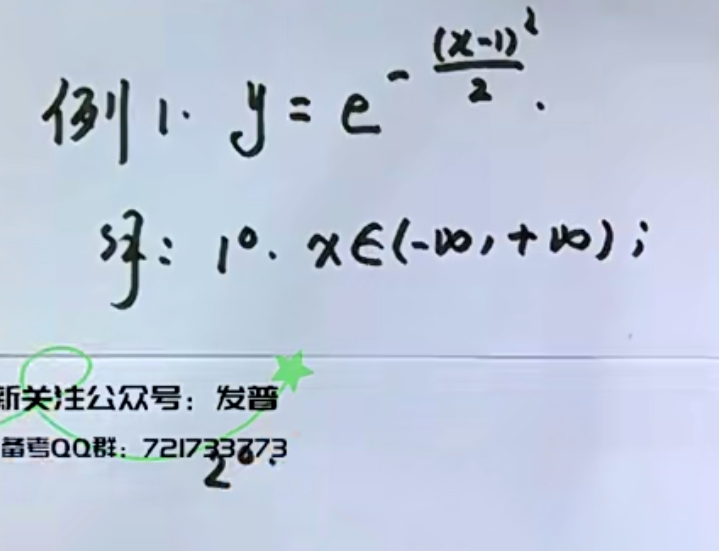 例1. y = e^{-\frac{(x-1)^2}{2}}.
解: 1°. x∈(-∞, +∞);
新关注公众号：发普
备考QQ群：721733773
2°.